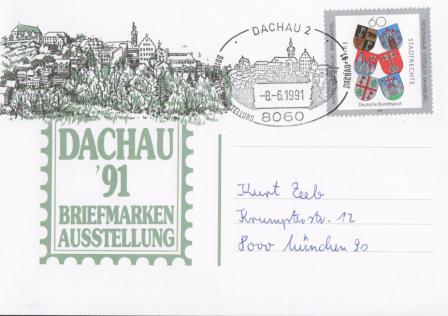 DACHAU 2
-8.-6.1991
8060
60
STADTRECHTE
Deutsche Bundespost
DACHAU
'91
BRIEFMARKEN
AUSSTELLUNG
Kurt Zeeb
12
8000 München 90